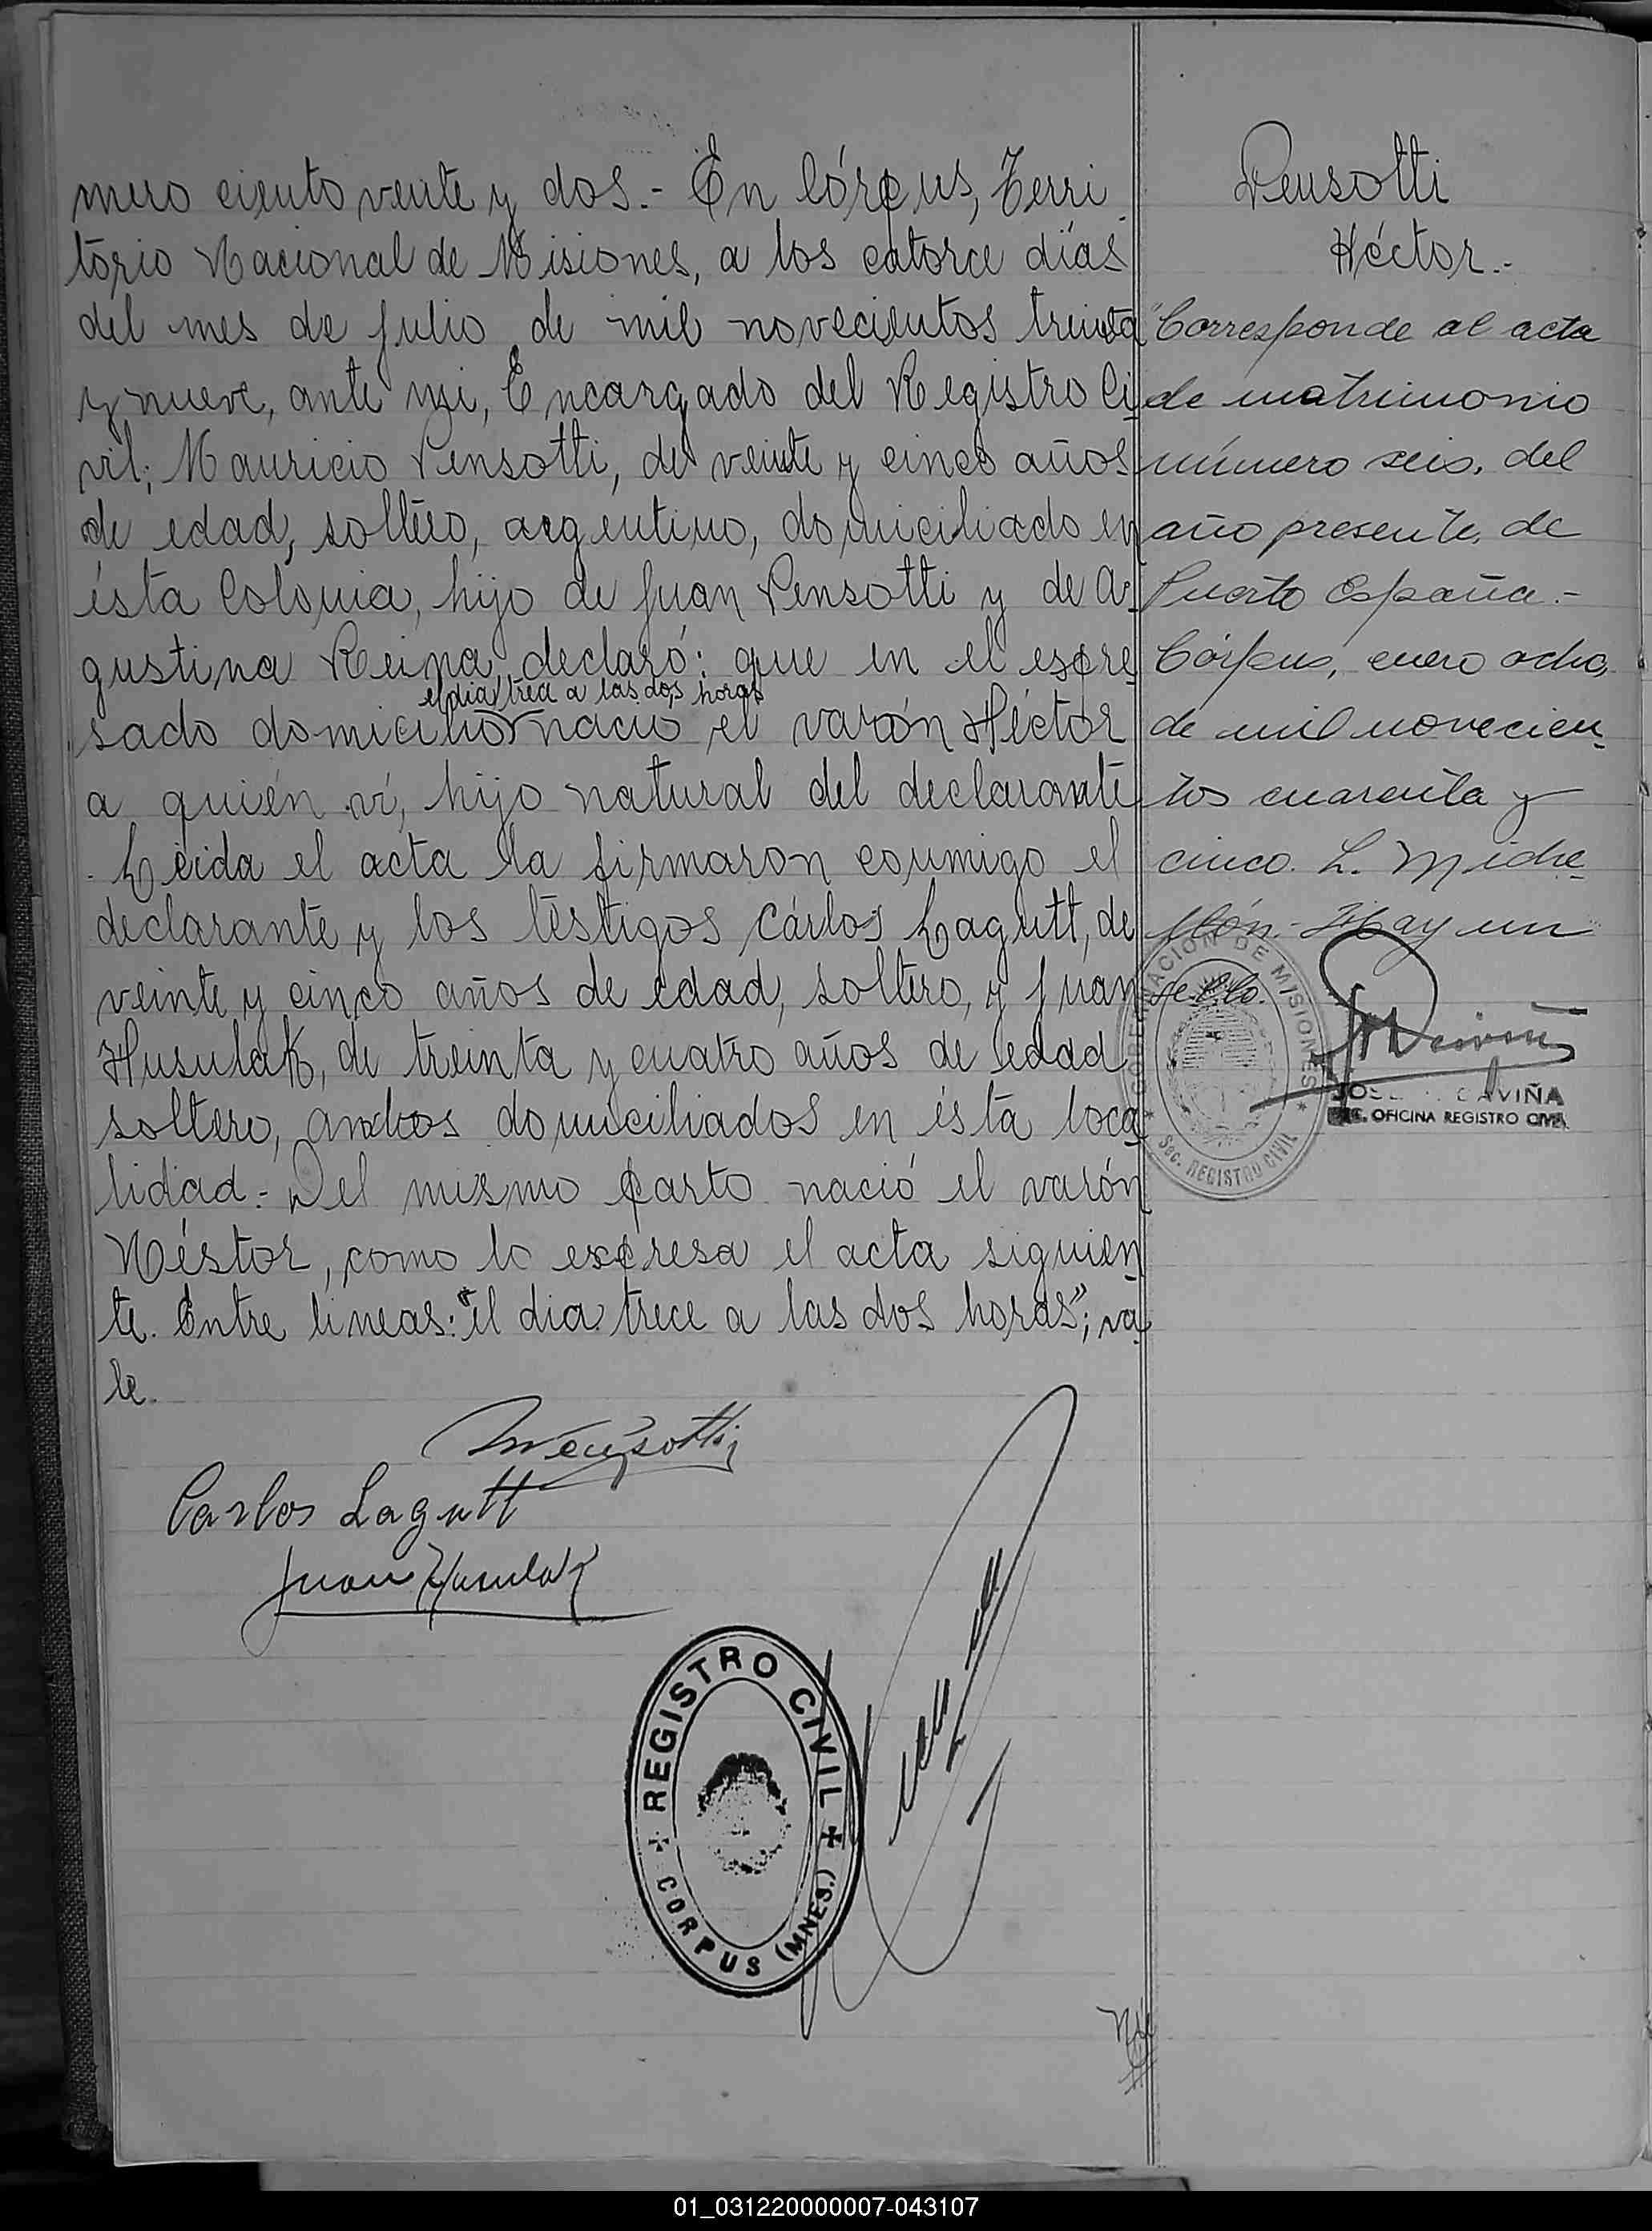 mero ciento veinte y dos.- En Córpus, Terri
torio Nacional de Misiones, a los catorce días
del mes de julio de mil novecientos treinta
y nueve, ante mi, Encargado del Registro Ci
vil; Mauricio Pensotti, de veinte y cinco años
de edad, soltero, argentino, domiciliado en
ésta Colonia, hijo de Juan Pensotti y de A-
gustina Reina, declaró: que en el espre
el dia trece a las dos horas
sado domicilio nacio el varón Héctor
a quién ví, hijo natural del declarante
. Leida el acta la firmaron conmigo el
declarante y los testigos Cárlos Lagutt, de
veinte y cinco años de edad, soltero, y Juan
Husulak, de treinta y cuatro años de edad
soltero, ambos domiciliados en ésta loca
lidad.- Del mismo parto nació el varón
Néstor, como lo expresa el acta siguien
te. Entre lineas: "el dia trece a las dos horas"; va
le.
Pensotti
Carlos Lagutt
Juan Husulak
REGISTRO CIVIL
CORPUS (MNES.)
Pensotti
Héctor.-
"Corresponde al acta
de matrimonio
número seis, del
año presente, de
Puerto España.-
Córpus, enero ocho,
de mil novecien-
tos cuarenta y
cinco. L. Miche-
llón.- Hay un
sello.
GOBERNACION DE MISIONES
Sec. REGISTRO CIVIL
JOSE CAVIÑA
OFICINA REGISTRO CIVIL
01_031220000007-043107